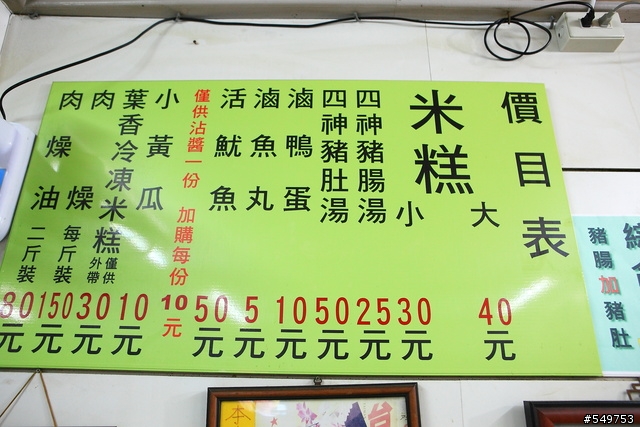 價目表
米糕 大 40元
小 30元
四神豬腸湯 25元
四神豬肚湯 50元
滷鴨蛋 10元
滷魚丸 5元
活魷魚 50元
僅供沾醬一份 加購每份 10元
小黃瓜 10元
葉香冷凍米糕 僅供外帶 30元
肉燥 每斤裝 150元
肉燥油 二斤裝 80元
豬腸加豬肚
#549753